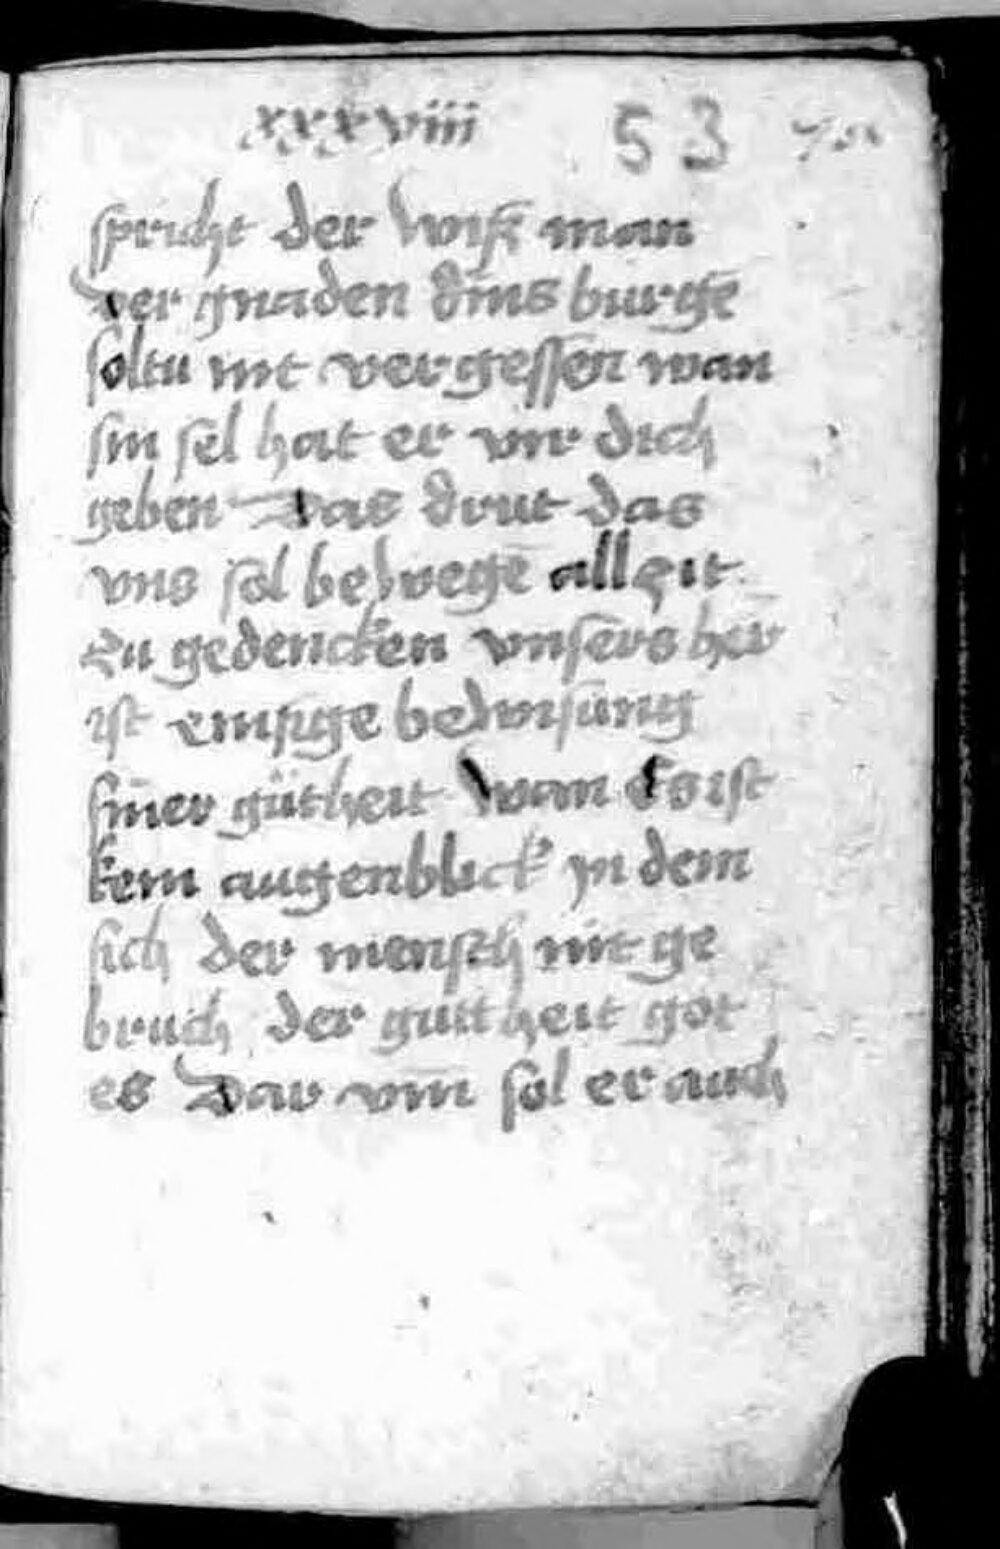 xxxviii 53
spricht der wiß man
Der gnaden dins burgē
soltu nit vergessen wan
sin sel hat er vir dich
geben Das drut das
vns sol bewegē allzit
zu gedencken vnsers her
ist emsige bewisung
siner gütheit wan Es ist
kein augenblick yn dem
sich der mensch nit ge
bruch der guttheit got
es Dar vm sol er auch